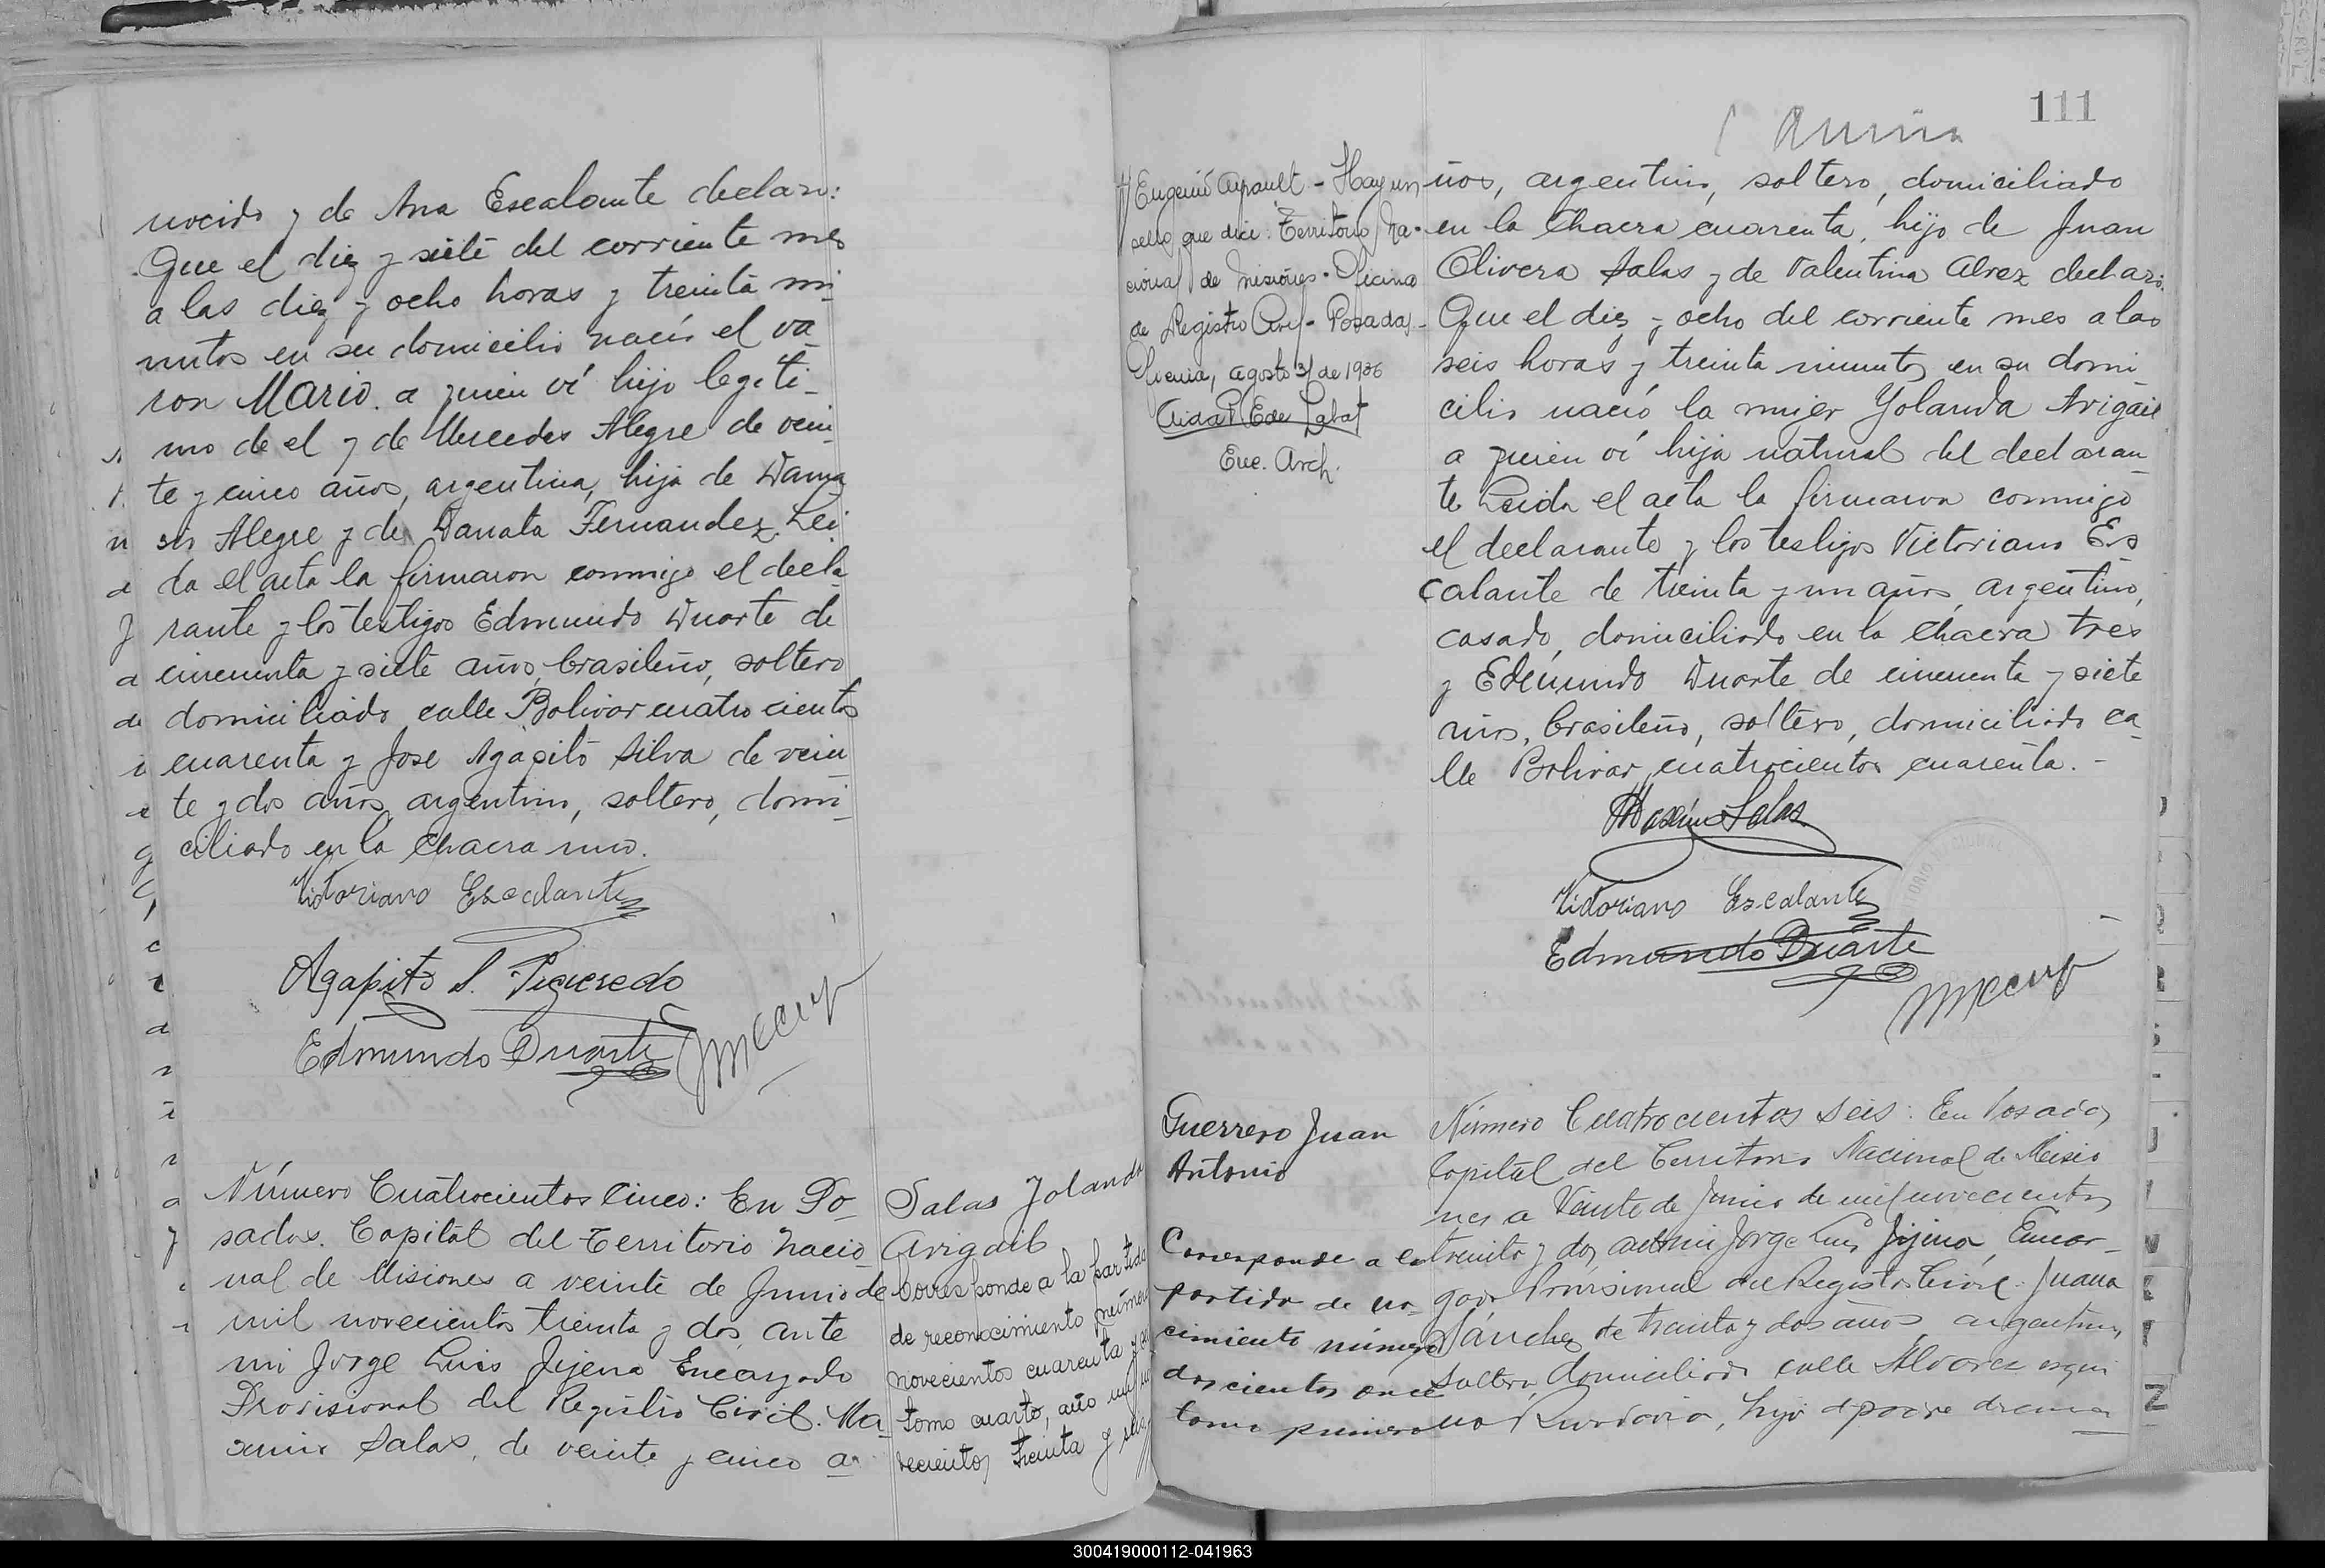 nocido y de Ana Escalante declaró:
Que el diez y siete del corriente mes
a las diez y ocho horas y treinta mi-
nutos en su domicilio nació el va-
ron Mario. a quien ví hijo legíti-
mo de el y de Mercedes Alegre de vein-
te y cinco años, argentina, hija de Dama-
so Alegre y de Danata Fernandez. Lei-
da el acta la firmaron conmigo el decla-
rante y los testigos Edmundo Duarte de
cincuenta y siete años, brasileño, soltero
domiciliado calle Bolivar cuatrocientos
cuarenta y Jose Agapito Silva de vein-
te y dos años, argentino, soltero, domi-
ciliado en la Chacra uno.
Victoriano Escalante
Agapito S. Figueredo
Edmundo Duarte
Número Cuatrocientos Cinco: En Po-
sadas. Capital del Territorio Nacio-
nal de Misiones a veinte de Junio de
mil novecientos treinta y dos, ante
mi Jorge Luis Jijena Encargado
Provisional del Registro Civil. Ma-
ximo Salas, de veinte y cinco a-
Salas Yolanda
Avigail
Corresponde a la partida
de reconocimiento número
novecientos cuarenta y
tomo cuarto, año mil no
vecientos treinta y seis
111
Eugenio Aypault - Hay un
sello que dice: Territorio Na-
cional de Misiones - Oficina
de Registro Civil - Posadas -
Oficina, agosto 31 de 1936
Aida R E de Labat
Enc. Arch.
ños, argentino, soltero, domiciliado
en la Chacra cuarenta, hijo de Juan
Olivera Salas y de Valentina Alvez declaró:
Que el diez y ocho del corriente mes a las
seis horas y treinta minutos en su domi-
cilio nació la mujer Yolanda Avigail
a quien ví hija natural del declaran-
te Leida el acta la firmaron conmigo
el declarante y los testigos Victoriano Es-
calante de treinta y un años, argentino,
casado, domiciliado en la Chacra tres
y Edmundo Duarte de cincuenta y siete
años, brasileño, soltero, domiciliado ca-
lle Bolivar cuatrocientos cuarenta. -
Maximo Salas
Victoriano Escalante
Edmundo Duarte
Guerrero Juan
Antonio
Corresponde a la
partida de na-
cimiento número
doscientos once
tomo primero
Número Cuatrocientos Seis: En Posadas
Capital del Territorio Nacional de Misio
nes a Veinte de Junio de mil novecientos
treinta y dos, ante mi Jorge Luis Jijena, Encar-
gado Provisional del Registro Civil. Juana
Sánchez de treinta y dos años, argentina,
soltera, domiciliada calle Alvarez esqui
na Rivadavia, hija de padre descono
300419000112-041963